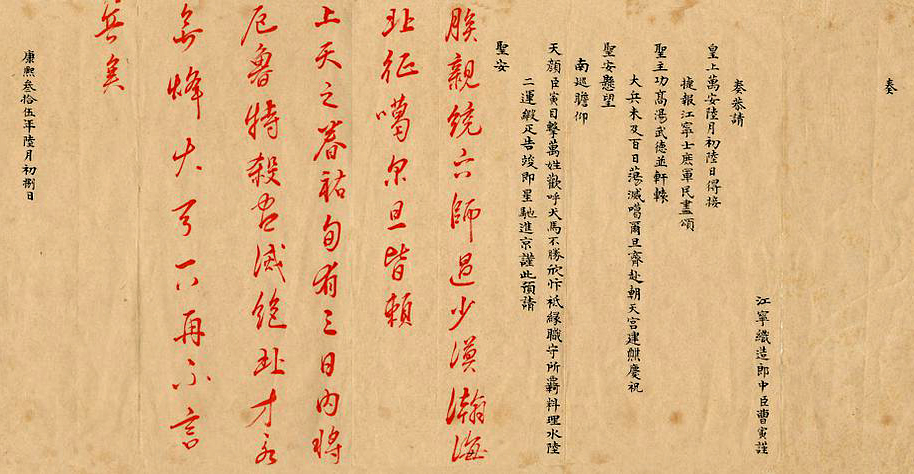 奏
江寧織造郎中臣曹寅謹
奏恭請
皇上萬安陸月初陸日得接
捷報江寧士庶軍民盡頌
聖主功高湯武德並軒轅
大兵未及百日蕩滅噶爾旦齊赴朝天宮建醮慶祝
聖安懸望
南巡瞻仰
天顏臣寅目擊萬姓歡呼犬馬不勝欣忭祗緣職守所羈料理水陸
二運緞疋告竣即星馳進京謹此預請
聖安
朕親統六師過少漠瀚海
北征噶尔旦皆賴
上天之眷祐旬有三日內將
厄魯特殺盡滅絕北方永
無烽火可以再不言
兵矣
康熙叁拾伍年陸月初捌日